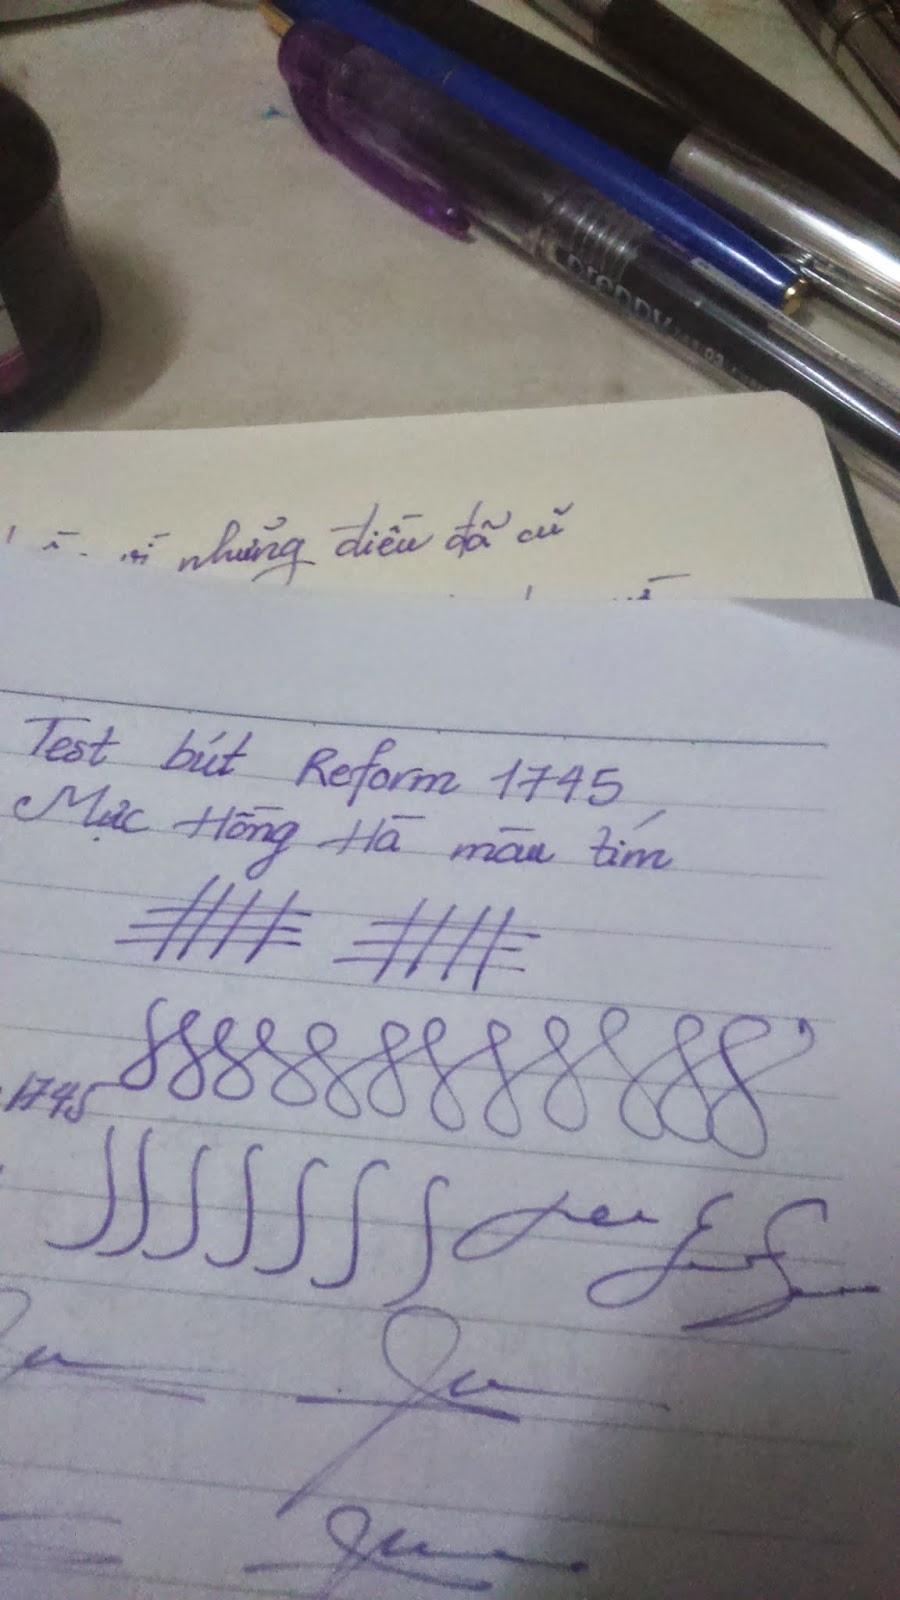 preppy
03
những điều đã cũ
Test bút Reform 1745
Mực Hồng Hà màu tím
1745